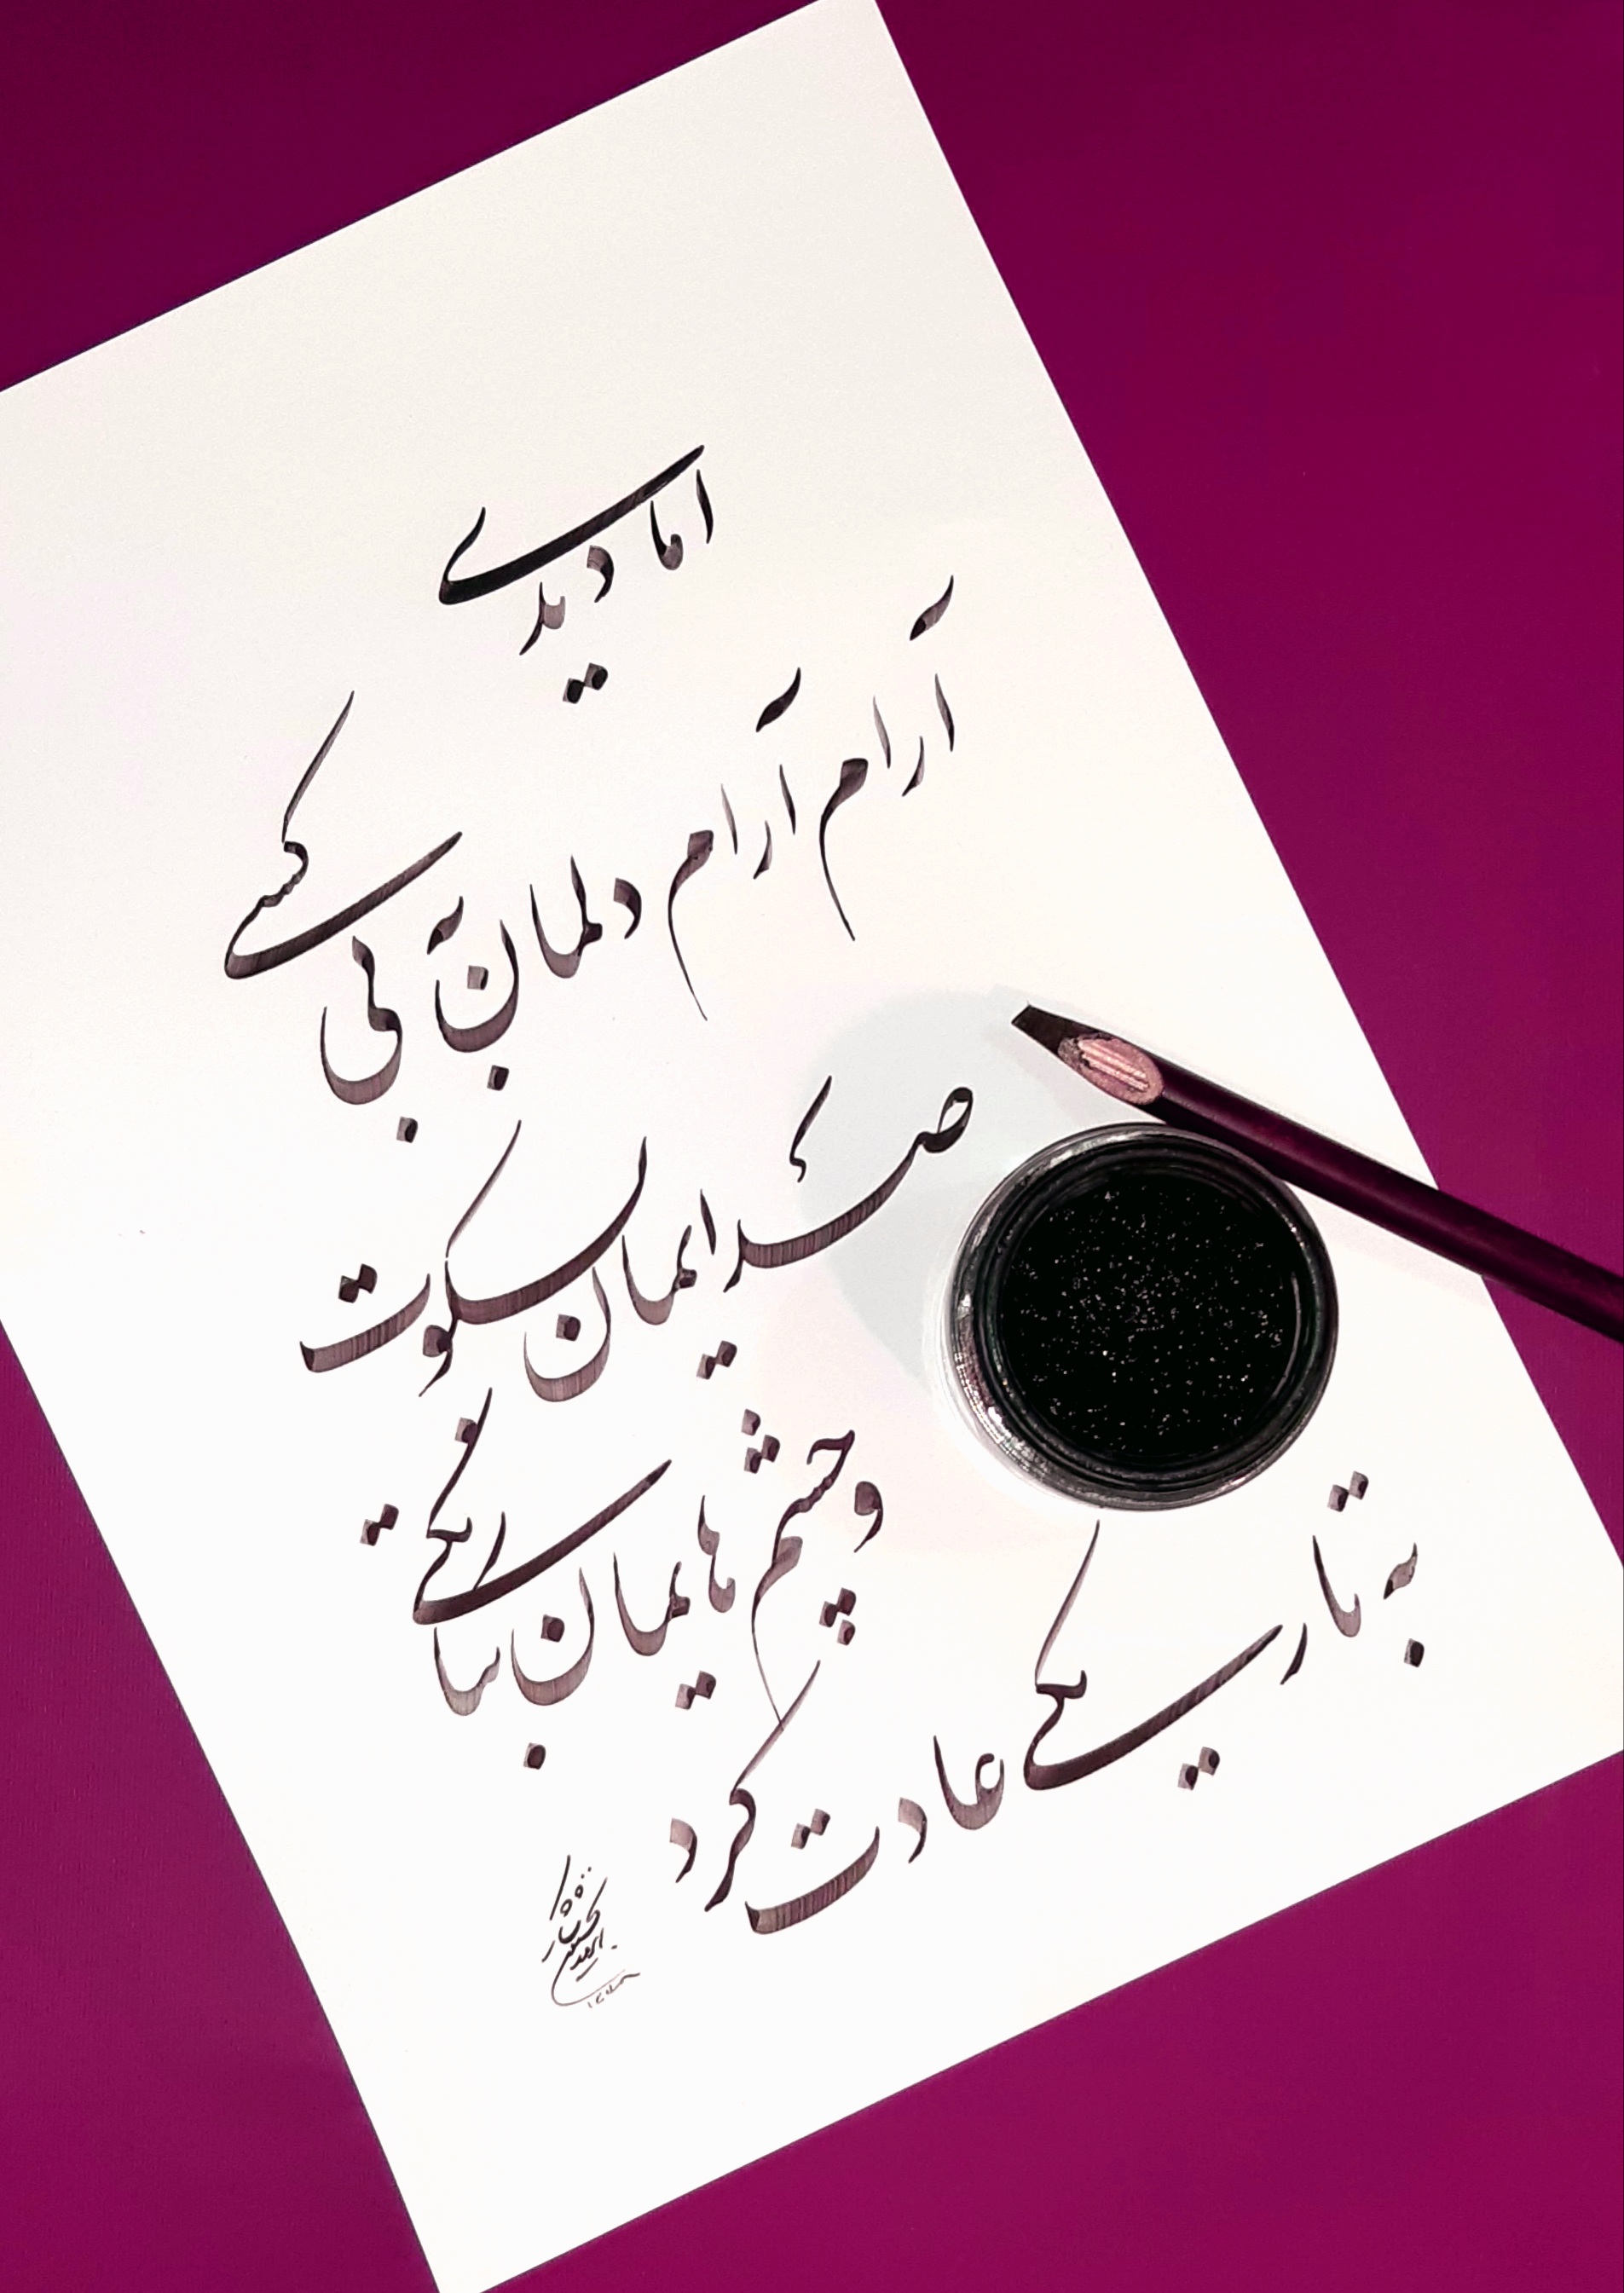 اما دیدی
آرام آرام دلمان به بی کسی
صدایمان سکوت
و چشم هایمان
به تاریکی عادت کرد